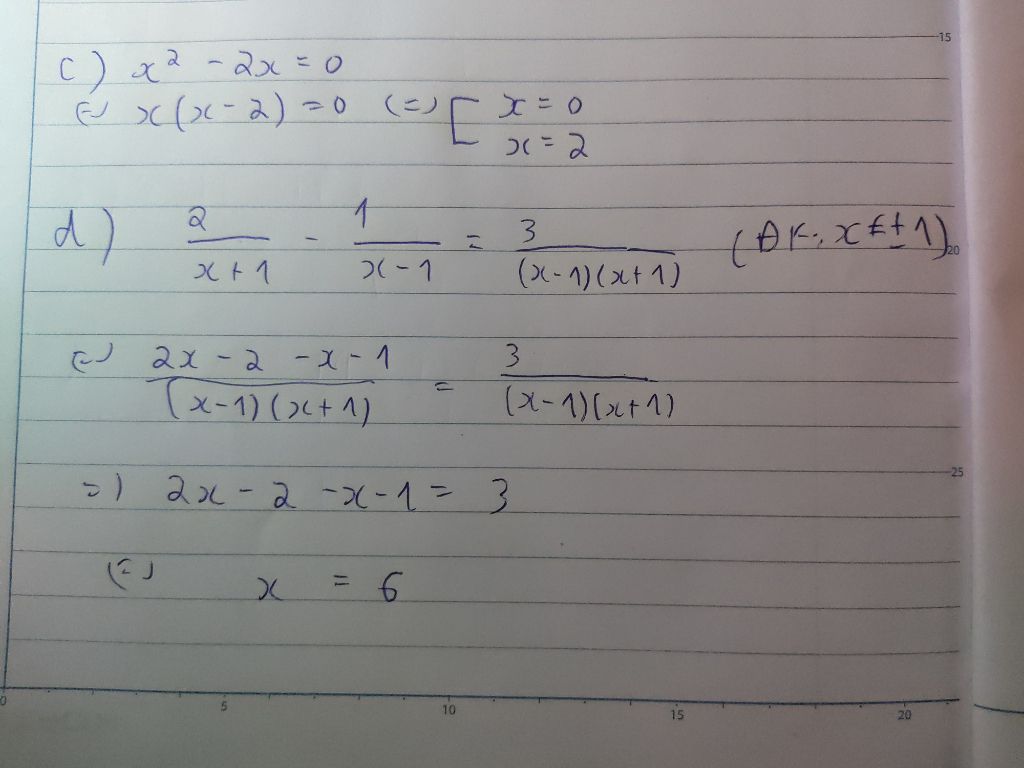 c) x² - 2x = 0
(=) x(x - 2) = 0 (=) [ x = 0
x = 2
d) 2/(x + 1) - 1/(x - 1) = 3/((x-1)(x+1)) (ĐK: x ≠ ± 1)
(=) (2x - 2 - x - 1)/((x-1)(x+1)) = 3/((x-1)(x+1))
=) 2x - 2 - x - 1 = 3
(=) x = 6
15
20
25
0 5 10 15 20